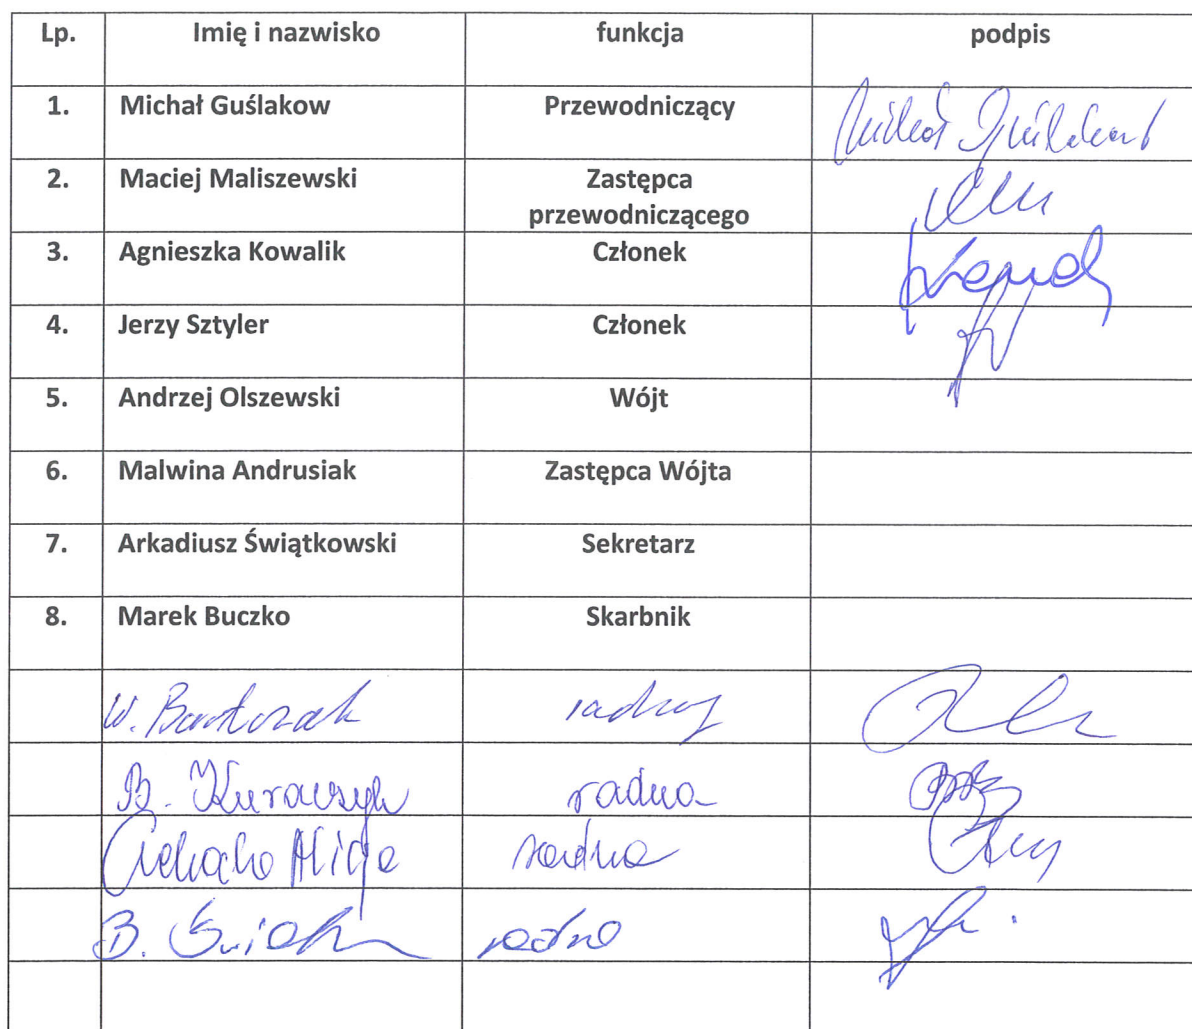 Lp. Imię i nazwisko funkcja podpis
1. Michał Guślakow Przewodniczący
2. Maciej Maliszewski Zastępca
przewodniczącego
3. Agnieszka Kowalik Członek
4. Jerzy Sztyler Członek
5. Andrzej Olszewski Wójt
6. Malwina Andrusiak Zastępca Wójta
7. Arkadiusz Świątkowski Sekretarz
8. Marek Buczko Skarbnik
W. Bartczak radny
B. radna
radna
B. radna